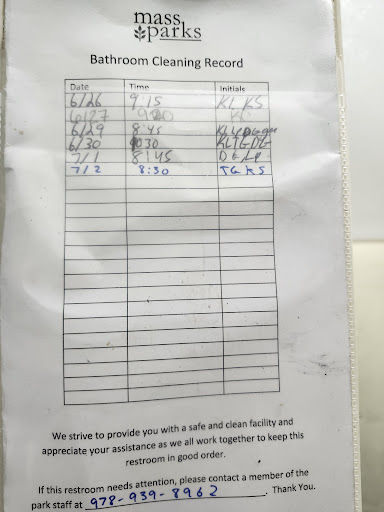 mass
parks
Bathroom Cleaning Record
Date Time Initials
6/26 9:15 KL KS
6/27
6/29 8:45
6/30 KLTGDG
7/1 8:45
7/2 8:30 TG KS
We strive to provide you with a safe and clean facility and
appreciate your assistance as we all work together to keep this
restroom in good order.
If this restroom needs attention, please contact a member of the
park staff at 978-939-8962. Thank You.